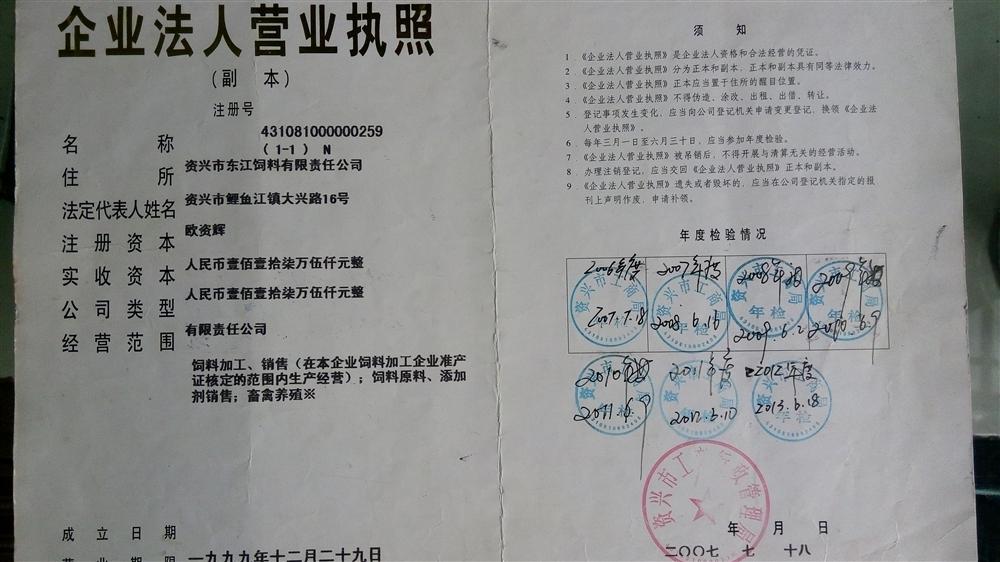 企业法人营业执照
(副 本)
注册号
431081000000259
(1-1) N
名 称
资兴市东江饲料有限责任公司
住 所
资兴市鲤鱼江镇大兴路16号
法定代表人姓名
欧资辉
注册资本
人民币壹佰壹拾柒万伍仟元整
实收资本
人民币壹佰壹拾柒万伍仟元整
公司类型
有限责任公司
经营范围
饲料加工、销售（在本企业饲料加工企业准产
证核定的范围内生产经营）；饲料原料、添加
剂销售；畜禽养殖※
成立日期
一九九九年十二月二十九日
营业期限
须 知
1 《企业法人营业执照》是企业法人资格和合法经营的凭证。
2 《企业法人营业执照》分为正本和副本，正本和副本具有同等法律效力。
3 《企业法人营业执照》正本应当置于住所的醒目位置。
4 《企业法人营业执照》不得伪造、涂改、出租、出借、转让。
5 登记事项发生变化，应当向公司登记机关申请变更登记，换领《企业法
人营业执照》。
6 每年三月一日至六月三十日，应当参加年度检验。
7 《企业法人营业执照》被吊销后，不得开展与清算无关的经营活动。
8 办理注销登记，应当交回《企业法人营业执照》正本和副本。
9 《企业法人营业执照》遗失或者毁坏的，应当在公司登记机关指定的报
刊上声明作废，申请补领。
年度检验情况
2006年度 2007年度 2008年 2009年
资兴市工商局 资兴市工商局
年检 年检 年检
2007.7.18 2008.6.16 2009.6.2 2010.6.9
2010年度 2011年度 2012年度
年检 年检
2011.6.9 2012.5.10 2013.6.18
资兴市工商行政管理局
年 月 日
二〇〇七 七 十八